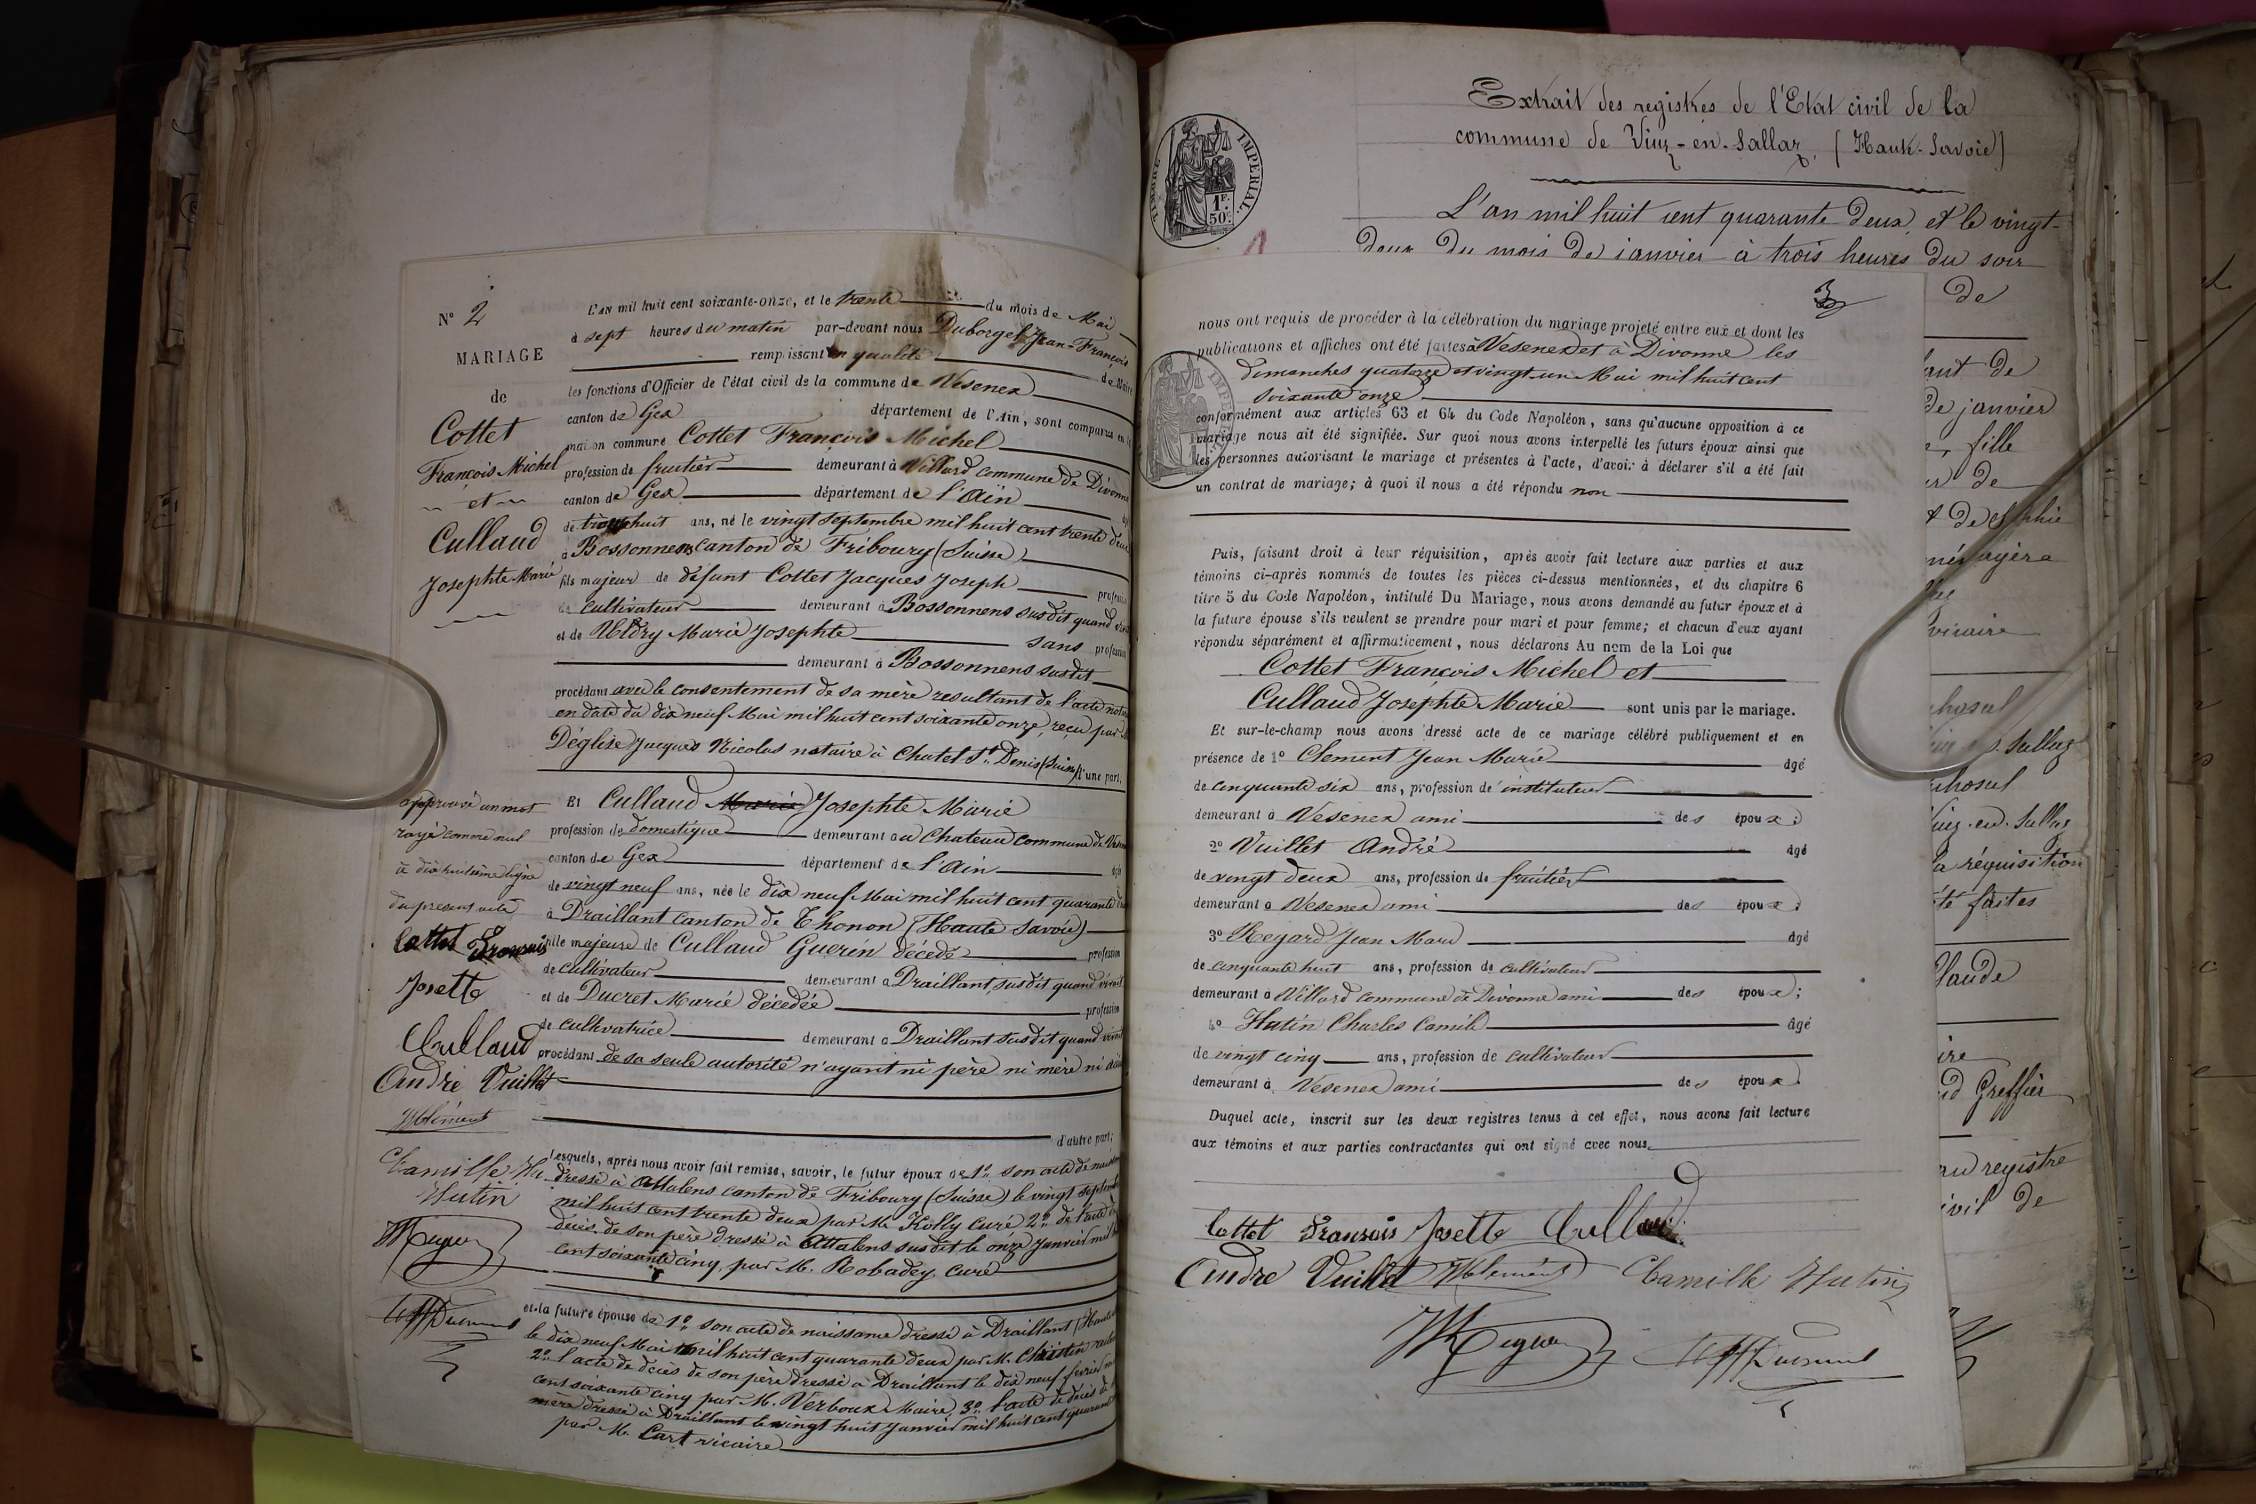 N° 2
MARIAGE
de
Cottet
François Michel
et
Cullaud
Josephte Marie
L'AN mil huit cent soixante-onze, et le trente du mois de Mai
à sept heures du matin par-devant nous Duborgel Jean-François
remplissant en qualité de Maire
les fonctions d'Officier de l'état civil de la commune de Vesenex
canton de Gex département de l'Ain, sont comparus en la
maison commune Cottet François Michel
profession de fruitier demeurant à Villard commune de Divonne
canton de Gex département de l'Ain
de trente huit ans, né le vingt septembre mil huit cent trente deux
à Bossonnens canton de Fribourg (Suisse)
fils majeur de défunt Cottet Jacques Joseph profession
de cultivateur demeurant à Bossonnens susdit quand vivait
et de Marie Josephte sans profession
demeurant à Bossonnens susdit
procédant avec le consentement de sa mère resultant de l'acte
en date du dix neuf Mai mil huit cent soixante onze, reçu par
Déglise Jacques Nicolas notaire à Chatel St. Denis (Suisse) d'une part.
approuvé un mot
rayé comme nul
à dix huitième ligne
du présent acte
Et Cullaud Marie Josephte Marie
profession de domestique demeurant au Chateau commune de
canton de Gex département de l'Ain
de vingt neuf ans, née le dix neuf Mai mil huit cent quarante
à Draillant canton de Thonon (Haute Savoie)
fille majeure de Cullaud Guerin décédé profession
de cultivateur demeurant à Draillant, susdit quand vivait
et de Ducret Marie décédée profession
de cultivatrice demeurant à Draillant susdit quand vivait
procédant de sa seule autorité n'ayant ni père ni mère ni
d'autre part;
Cottet François
Josette
Cullaud
André Vuillet
Clément
Camille Hu
Hutin
Lesquels, après nous avoir fait remise, savoir, le futur époux de 1° son acte de
dressé à Attalens canton de Fribourg (Suisse) le vingt septembre
mil huit cent trente deux par M. Kolly Curé 2° de l'acte de
décès de son père dressé à Attalens susdit le onze Janvier mil
cent soixante cinq, par M. Robadey, curé
et la future épouse de 1° son acte de naissance dressé à Draillant
le dix neuf Mai mil huit cent quarante deux par M. Christin
2° l'acte de décès de son père dressé à Draillant le dix neuf
cent soixante cinq par M. Verboux Maire, 3° l'acte de décès de
mère dressé à Draillant le vingt huit Janvier mil huit cent
par M. Cart vicaire
Extrait des registres de l'Etat civil de la
commune de Viuz-en-Sallaz, (Haute-Savoie)
TIMBRE IMPERIAL.
1F.
50c.
L'an mil huit cent quarante deux, et le vingt-
deux du mois de janvier à trois heures du soir
3
nous ont requis de procéder à la célébration du mariage projeté entre eux et dont les
publications et affiches ont été faites à Vesenex et à Divonne les
dimanches quatorze et vingt un Mai mil huit cent
soixante onze
conformément aux articles 63 et 64 du Code Napoléon, sans qu'aucune opposition à ce
mariage nous ait été signifiée. Sur quoi nous avons interpellé les futurs époux ainsi que
les personnes autorisant le mariage et présentes à l'acte, d'avoir à déclarer s'il a été fait
un contrat de mariage; à quoi il nous a été répondu non
Puis, faisant droit à leur réquisition, après avoir fait lecture aux parties et aux
témoins ci-après nommés de toutes les pièces ci-dessus mentionnées, et du chapitre 6
titre 5 du Code Napoléon, intitulé Du Mariage, nous avons demandé au futur époux et à
la future épouse s'ils veulent se prendre pour mari et pour femme; et chacun d'eux ayant
répondu séparément et affirmativement, nous déclarons Au nom de la Loi que
Cottet François Michel et
Cullaud Josephte Marie sont unis par le mariage.
Et sur-le-champ nous avons dressé acte de ce mariage célébré publiquement et en
présence de 1° Clement Jean Marie âgé
de cinquante six ans, profession d'instituteur
demeurant à Vesenex ami des époux;
2° Vuillet André âgé
de vingt deux ans, profession de fruitier
demeurant à Vesenex ami des époux;
3° Regard Jean Marie âgé
de cinquante huit ans, profession de cultivateur
demeurant à Villard commune de Divonne ami des époux;
4° Hutin Charles Camille âgé
de vingt cinq ans, profession de cultivateur
demeurant à Vesenex ami des époux.
Duquel acte, inscrit sur les deux registres tenus à cet effet, nous avons fait lecture
aux témoins et aux parties contractantes qui ont signé avec nous.
Cottet François Josette Cullaud
André Vuillet Clément Camille Hutin
de
de janvier
fille
de
vicaire
Sallaz
la réquisition
été faites
Greffier
au registre
civil de